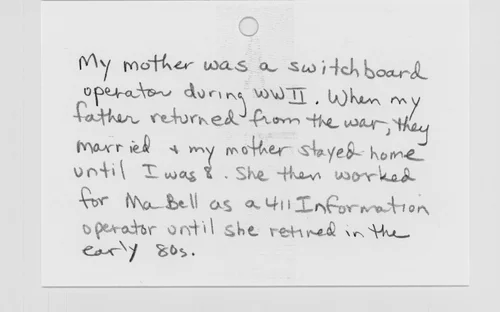 My mother was a switchboard
operator during WWII. When my
father returned from the war, they
married + my mother stayed home
until I was 8. She then worked
for Ma Bell as a 411 Information
operator until she retired in the
early 80s.